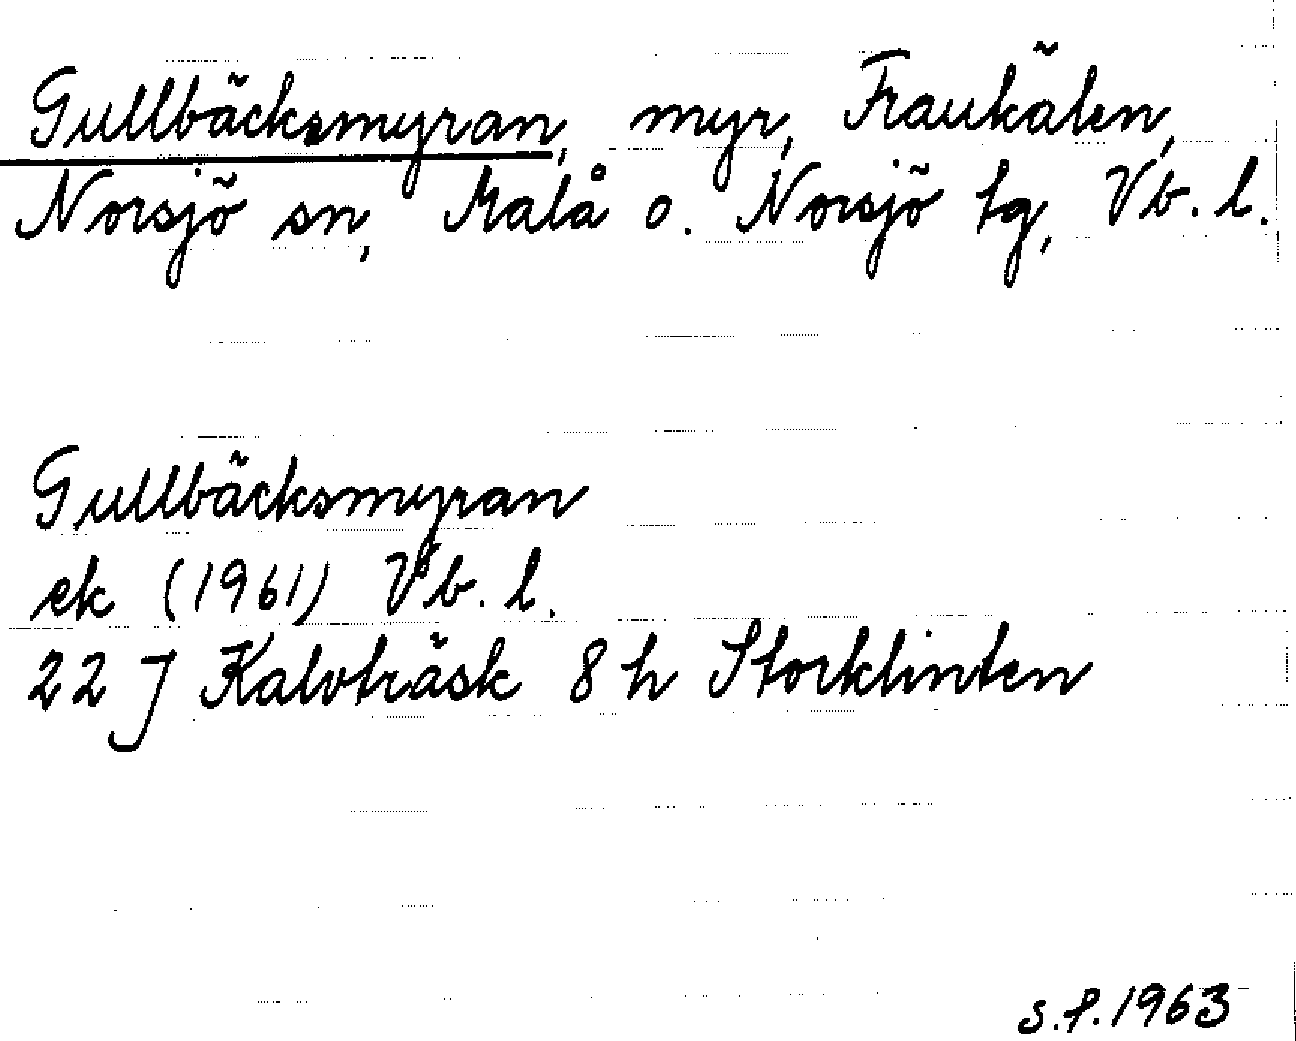 Gullbäcksmyran, myr, Fraukälen,
Norsjö sn, Malå o. Norsjö tg, Vb. l.
Gullbäcksmyran
ek (1961) Vb. l.
22 J Kalvträsk 8 h Storklinten
S.P. 1963